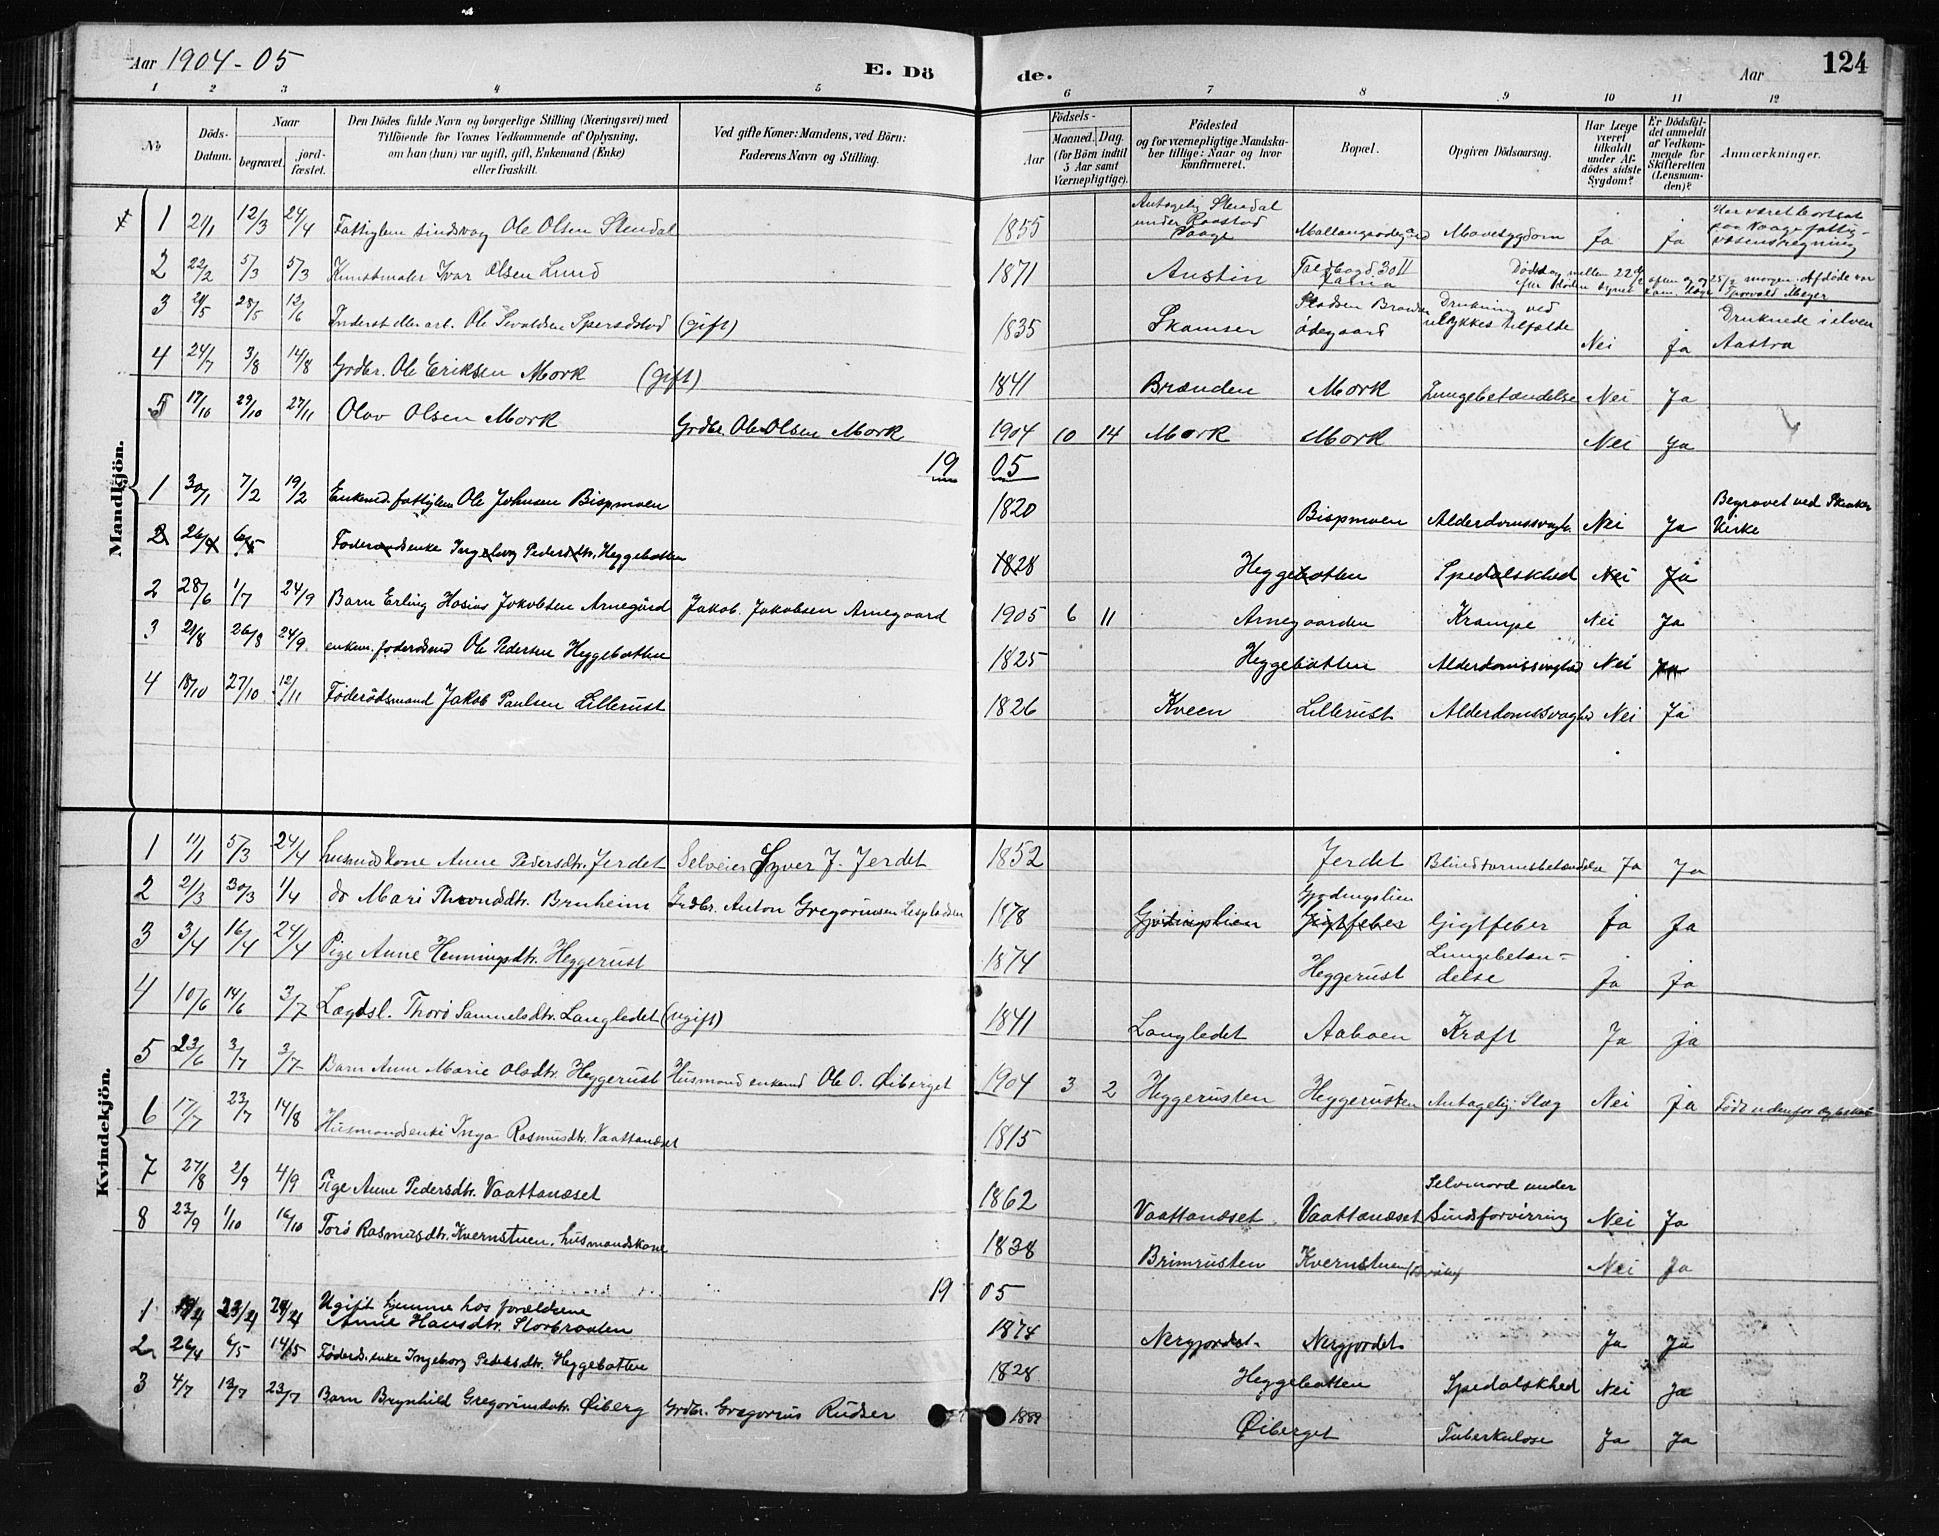 Aar 1904-05
E. Döde.
Aar
124
1 2 3 4 5 6 7 8 9 10 11 12
No
Döds-Datum.
Naar
begravet.
jordfæstet.
Den Dödes fulde Navn og borgerlige Stilling (Næringsvei) med
Tilföiende for Voxnes Vedkommende af Oplysning,
om han (hun) var ugift, gift, Enkemand (Enke)
eller fraskilt.
Ved gifte Koner: Mandens, ved Börn:
Faderens Navn og Stilling.
Födsels-
Aar
Maaned. Dag.
(for Börn indtil
5 Aar samt
Værnepligtige).
Födested
og for værnepligtige Mandska-
ber tillige: Naar og hvor
konfirmeret.
Bopæl.
Opgiven Dödsaarsag.
Har Læge
været
tilkaldt
under Af-
dödes sidste
Sygdom?
Er Dödsfal-
det anmeldt
af Vedkom-
mende for
Skifteretten
(Lensman-
den)?
Anmærkninger.
Mandkjön.
1 2/1 12/3 24/4 Fattiglem sindssvag Ole Olsen Stendal 1855 Antagelig Stendal under Vaage Mavesygdom Ja Ja Har været bortsat paa Vaage fattigvæsens regning
2 22/2 5/3 5/3 Kunstmaler Ivar Olsen Lund 1871 Austin
3 28/5 12/6 Ole Sivaldsen Spersdstod (gift) 1835 Skamser Pladsen ödegaard Drukning ved ulykkestilfælde Nei Ja Druknede i elven Aastra
4 24/7 3/8 14/8 Grdbr. Ole Eriksen Mork (gift) 1841 Brænden Mork Lungebetændelse Nei Ja
5 17/10 29/10 27/11 Olav Olsen Mork Grdbr. Ole Olsen Mork 1904 10 14 Mork Mork Nei Ja
1905
1 30/1 7/2 19/2 Enkemd. fattiglem Ole Johnsen Bispmoen 1820 Bispmoen Alderdomssvagh. Nei Ja Begravet ved Skeaker Kirke
2 26/4 6/5 Föderaadsenke Ingeborg Pedersdtr. Heggebotten 1828 Heggebotten Spedalskhed Nei Ja
2 28/6 1/7 24/9 Barn Erling Hosias Jakobsen Arnegård Jakob Jakobsen Arnegaard 1905 6 11 Arnegaarden Krampe Nei Ja
3 21/8 26/8 24/9 enkem. föderådsmd Ole Pedersen Heggebotten 1825 Heggebotten Alderdomssvaghed Nei Ja
4 18/10 27/10 12/11 Föderådsmand Jakob Paulsen Lillerust 1826 Kveen Lillerust Alderdomssvaghed Nei Ja
Kvindekjön.
1 11/1 5/3 24/4 Husmdskone Anne Pedersdtr. Jerdet Selveier Syver J. Jerdet 1852 Jerdet Blindtarmsbetændelse Ja Ja
2 2/3 30/3 1/4 do Mari Throndsdtr. Bruheim Grdbr. Anton Gregoriussen 1878 Gjödingslien Gjödingslien Gigtfeber Gigtfeber Ja Ja
3 3/4 16/4 24/4 Pige Anne Henningsdtr. Heggerust 1874 Heggerust Lungebetændelse Ja Ja
4 10/6 14/6 3/7 Lægdsl. Thorö Samuelsdtr. Langledet (ugift) 1841 Langledet Aaboen Kræft Ja ja
5 23/6 3/7 3/7 Barn Anne Marie Olsdtr. Heggerust Husmand enkemd Ole O. Öiberget 1904 3 2 Heggerusten Heggerusten Antagelig Slag Nei Ja Födt udenfor ægteskab
6 17/7 23/7 14/8 Husmandsenke Inga Rasmusdtr. Vaattanæset 1815
7 27/8 2/9 4/9 Pige Anne Pedersdtr. Vaattanæset 1862 Vaattanæset Vaattanæset Selvmord under Sindsforvirring Nei Ja
8 23/9 1/10 16/10 Torö Rasmusdtr. Kvernstuen, husmandskone 1838 Brimrusten Kvernstuen Nei Ja
1905
1 23/4 24/4 Ugift hjemme hos forældrene Anne Hansdtr. Storbraaten 1874 Nergjordet Nergjordet Ja Ja
2 26/4 6/5 14/5 Föderdsenke Ingeborg Pedersdtr. Heggebotten 1828 Heggebotten Spedalskhed Nei Ja
3 4/7 13/7 23/7 Barn Brynhild Gregoriusdatr. Öiberg Grdbr. Gregorius Rudser 1889 Öiberget Tuberkulose Ja Ja